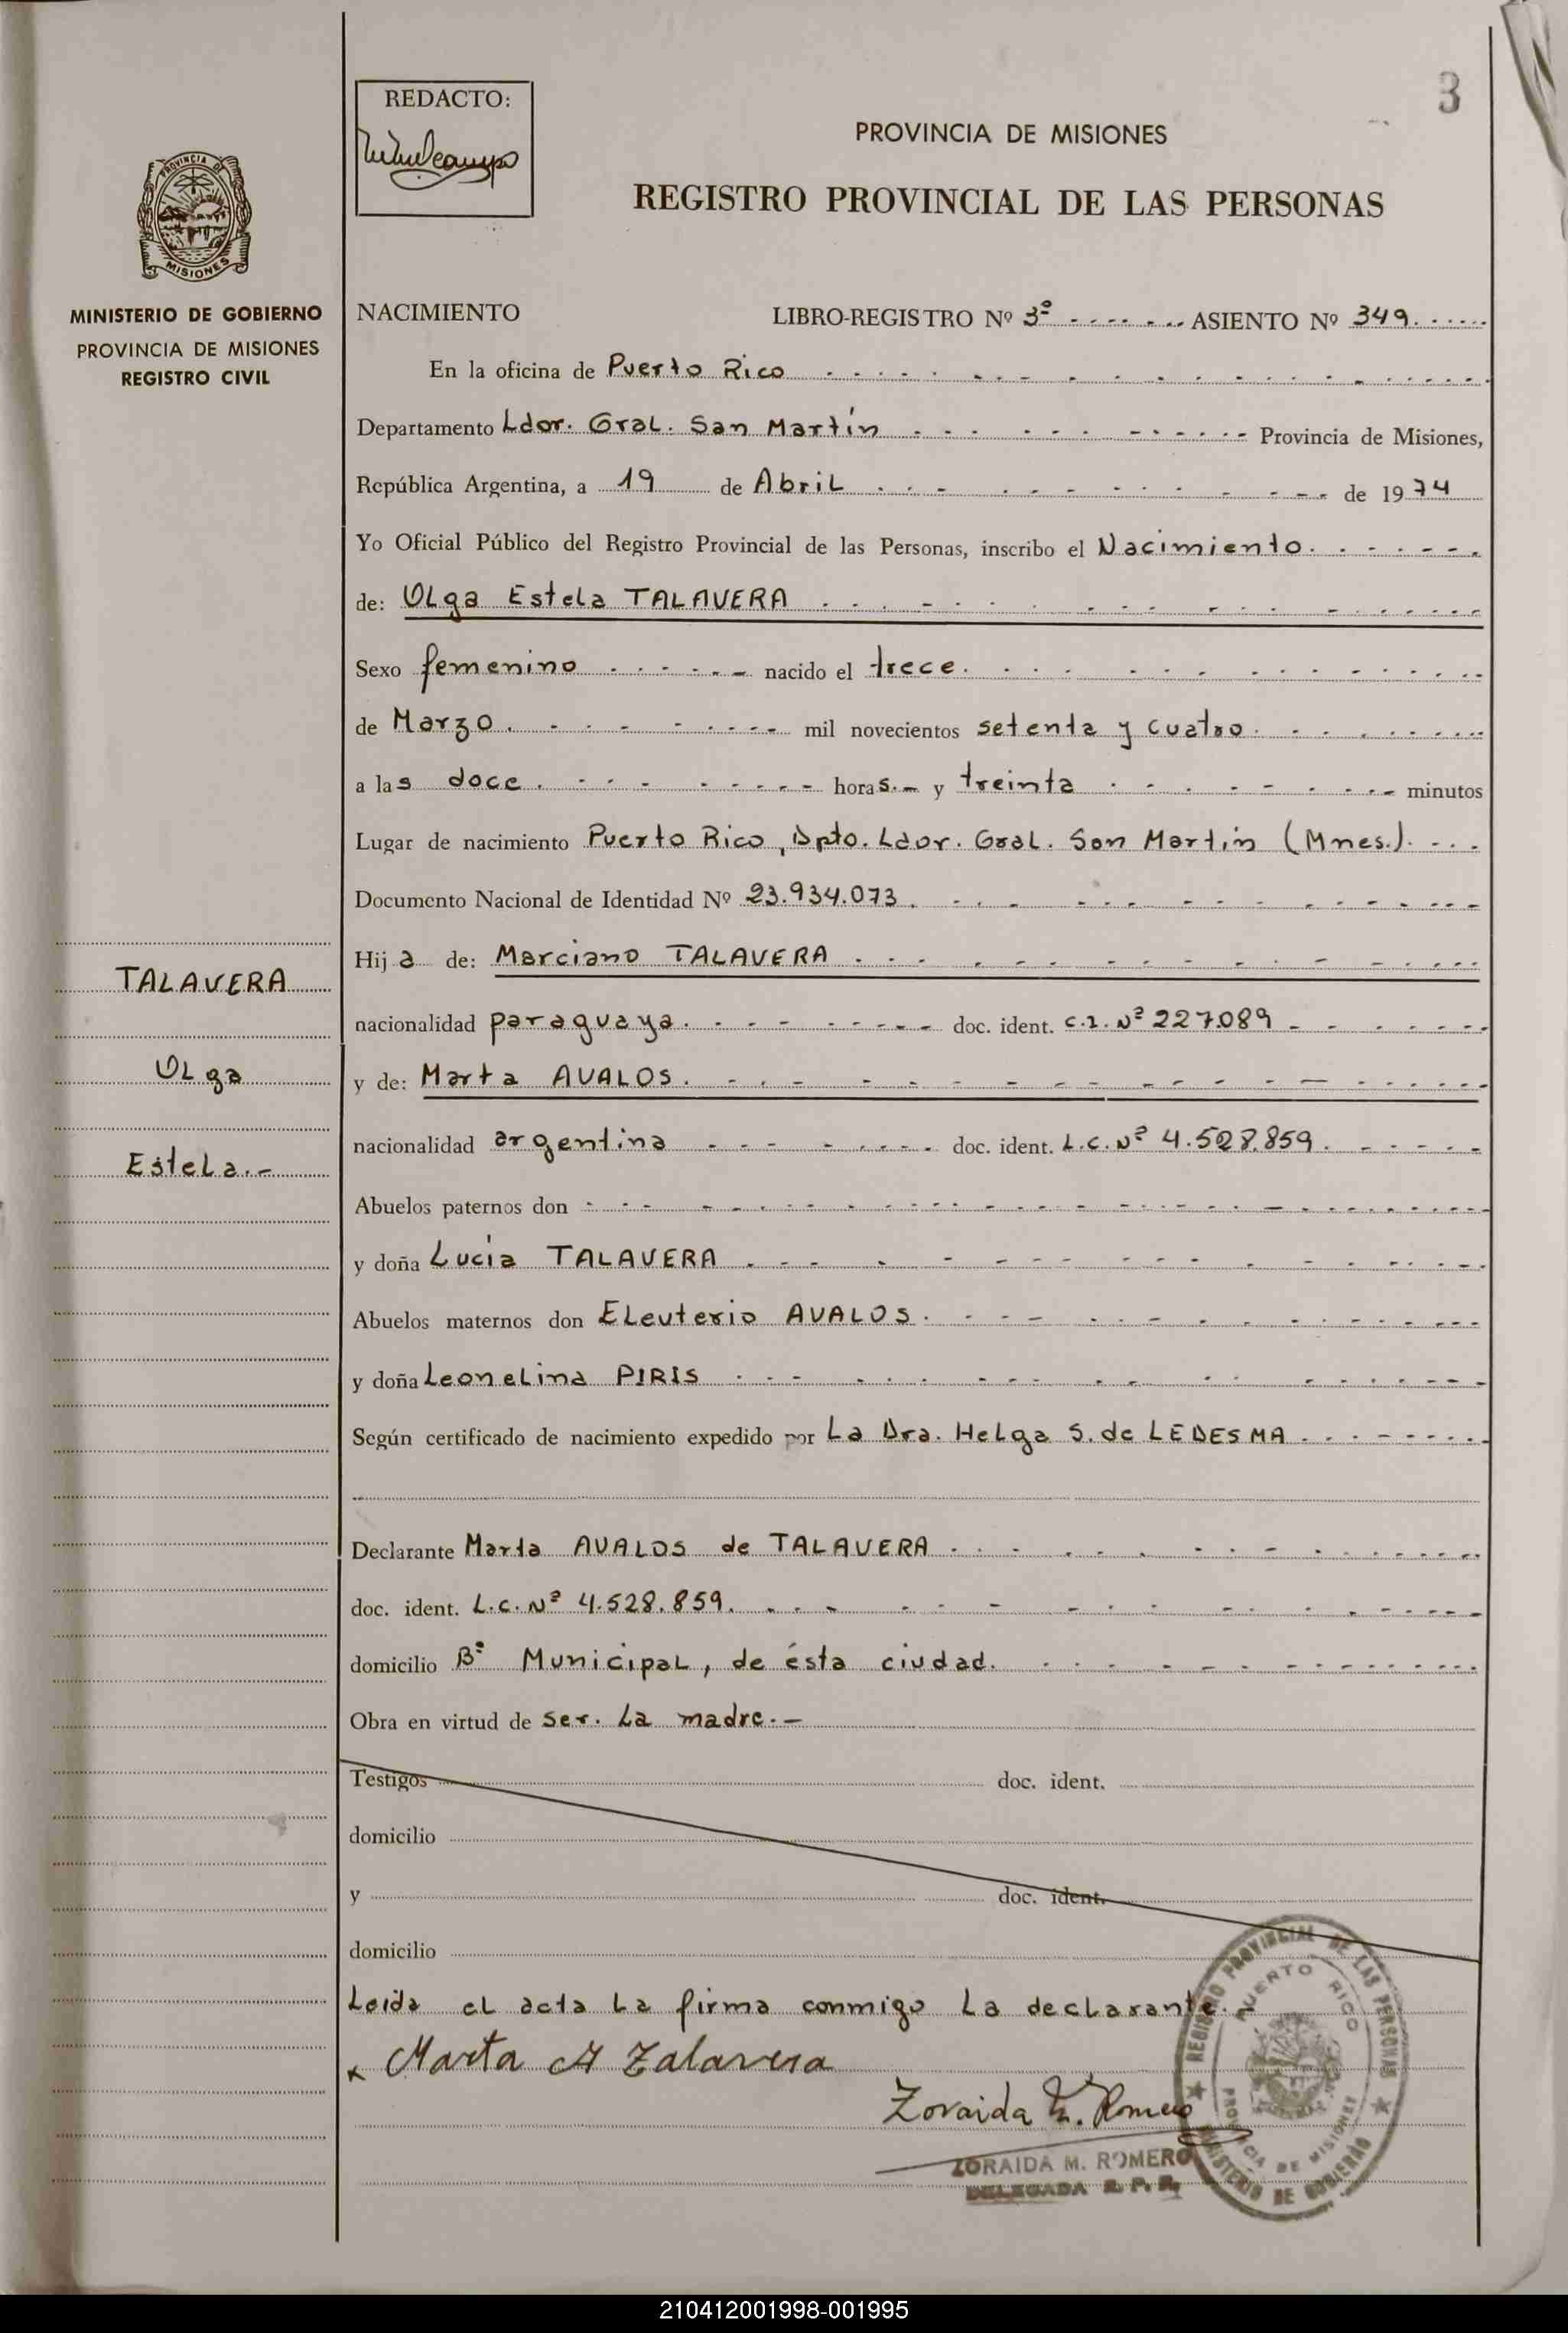 3
REDACTO:
PROVINCIA DE MISIONES
REGISTRO PROVINCIAL DE LAS PERSONAS
PROVINCIA DE
MISIONES
MINISTERIO DE GOBIERNO
PROVINCIA DE MISIONES
REGISTRO CIVIL
NACIMIENTO LIBRO-REGISTRO Nº 3º ASIENTO Nº 349.
En la oficina de Puerto Rico
Departamento Ldor. Gral. San Martín Provincia de Misiones,
República Argentina, a 19 de Abril de 1974
Yo Oficial Público del Registro Provincial de las Personas, inscribo el Nacimiento.
de: Olga Estela TALAVERA
Sexo femenino nacido el trece.
de Marzo. mil novecientos setenta y cuatro.
a las doce. horas.- y treinta minutos
Lugar de nacimiento Puerto Rico, Dpto. Ldor. Gral. San Martín (Mnes.).
Documento Nacional de Identidad Nº 23.934.073.
Hija de: Marciano TALAVERA
nacionalidad paraguaya. doc. ident. C.I. Nº 227.089
y de: Marta AVALOS.
nacionalidad argentina doc. ident. L.C. Nº 4.528.859.
Abuelos paternos don
y doña Lucía TALAVERA
Abuelos maternos don Eleuterio AVALOS.
y doña Leonelina PIRIS
Según certificado de nacimiento expedido por La Dra. Helga S. de LEDESMA
Declarante Marta AVALOS de TALAVERA
doc. ident. L.C. Nº 4.528.859.
domicilio Bº Municipal, de ésta ciudad.
Obra en virtud de ser. La madre.-
Testigos doc. ident.
domicilio
y doc. ident.
domicilio
Leida el acta la firma conmigo la declarante.-
x Marta A Talavera
Zoraida M. Romero
ZORAIDA M. ROMERO
DELEGADA R. P. P.
REGISTRO PROVINCIAL DE LAS PERSONAS
MINISTERIO DE GOBIERNO
PUERTO RICO
PROVINCIA DE MISIONES
TALAVERA
Olga
Estela.-
210412001998-001995